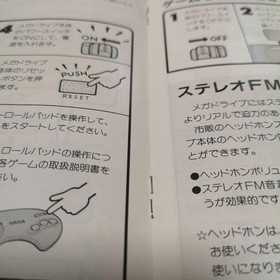 4 メガドライブ本体
のパワースイッチ
をONにして、電
源を入れます。
ON
メガドライブ
本体のリセッ
トボタンを押
します。
PUSH
RESET
ロールパッドを操作して、
をスタートしてください。
ロールパッドの操作につ
各ゲームの取扱説明書を
ださい。
SEGA
ゲーム
1
2
ステレオFM
メガドライブにはステ
よりリアルで迫力のあ
市販のヘッドホンス
ブ本体のヘッドホン
とができます。
●ヘッドホンボリュ
●ステレオFM音
うが効果的です
☆ヘッドホンは、
お使いくださ
使いになりま